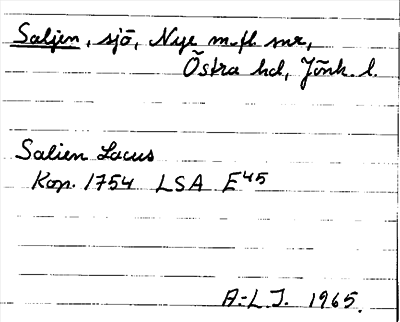 Saljen, sjö, Nye m.fl. snr,
Östra hd, Jönk. l.
Salien Lacus
Kop. 1754 LSA E45
A-L J. 1965.